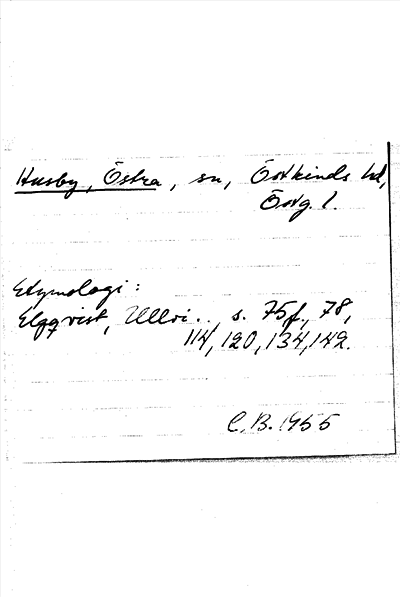 Husby, Östra, sn, Östkinds hd,
Östg. l.
Etymologi:
Elgqvist, Ullvi.. s. 75f., 78,
114, 120, 134, 142.
C.B. 1955